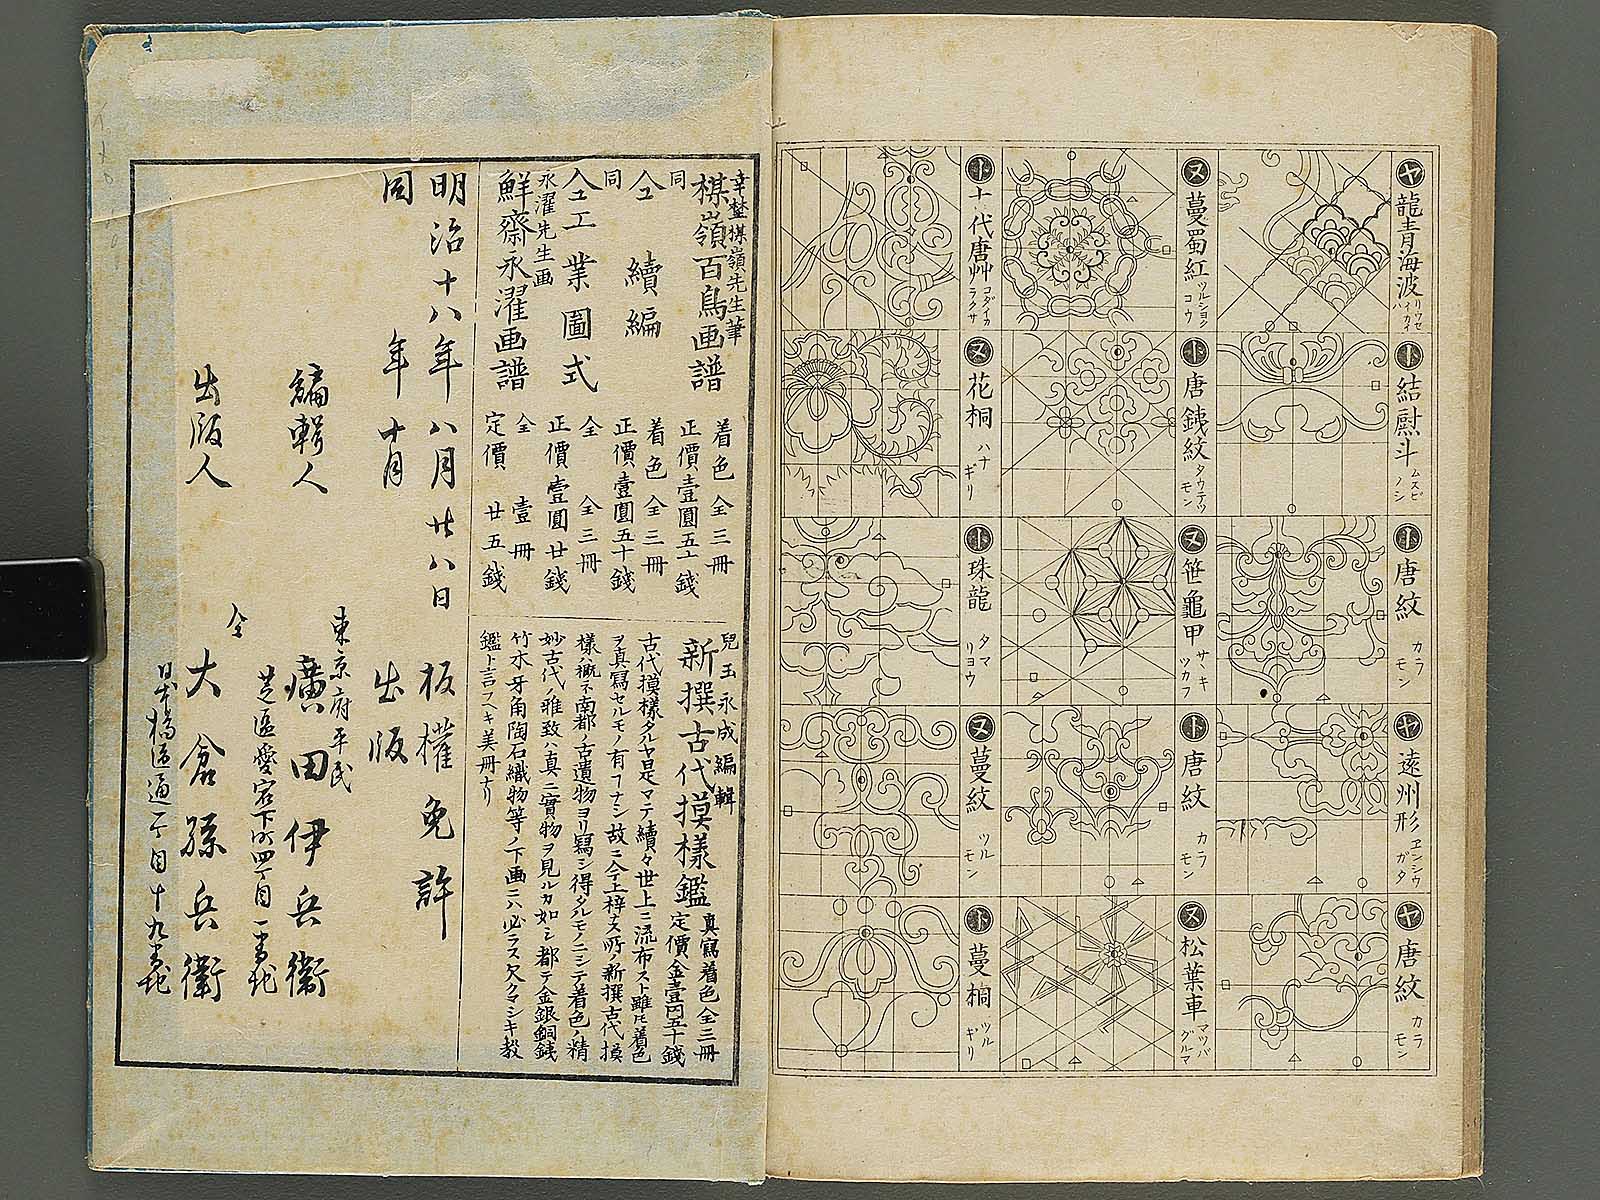 ヤ 龍青海波
ト 結熨斗 ムスビノシ
ト 唐紋 カラモン
ヤ 遠州形 ヱンシウガタ
ヤ 唐紋 カラモン
ヌ 蔓蜀紅 ツルショクコウ
ト 唐銕紋 タウテツモン
ヌ 笹龜甲
ト 唐紋 カラモン
ヌ 松葉車 マツバグルマ
ト 十代唐艸 コダイカラクサ
ヌ 花桐 ハナギリ
ト 珠龍 タマリヨウ
ヌ 蔓紋 ツルモン
ト 蔓桐 ツルギリ
幸埜楳嶺先生筆
楳嶺百鳥画譜 着色全三冊 正價壹圓五十錢
同
仝 續編 着色全三冊 正價壹圓五十錢
同
仝工業圖式 仝 全三冊 正價壹圓廿錢
永濯先生画
鮮齋永濯画譜 仝 壹冊 定價 廿五錢
兒玉永成編輯
新撰古代摸樣鑑 真寫着色全二冊 定價金壹円五十錢
古代摸樣タルヤ是マテ續々世上ニ流布スト雖𪜈着色
ヲ真寫セルモノ有ヿナシ故ニ今上梓スル所ノ新撰古代摸
樣ハ概子南都ノ古遺物ヨリ寫シ得タルモノニシテ着色ノ精
妙古代ノ雅致ハ真ニ實物ヲ見ルカ如シ都テ金銀銅銕
竹木牙角陶石織物等ノ下画ニハ必ラス欠クマシキ教
鑑ト言フヘキ美冊ナリ
明治十八年八月廿八日 板權免許
同 年十月 出版
東京府平民
編輯人 廣田伊兵衞
芝區愛宕下町四丁目一番地
仝
出版人 大倉孫兵衞
日本橋區通一丁目十九番地